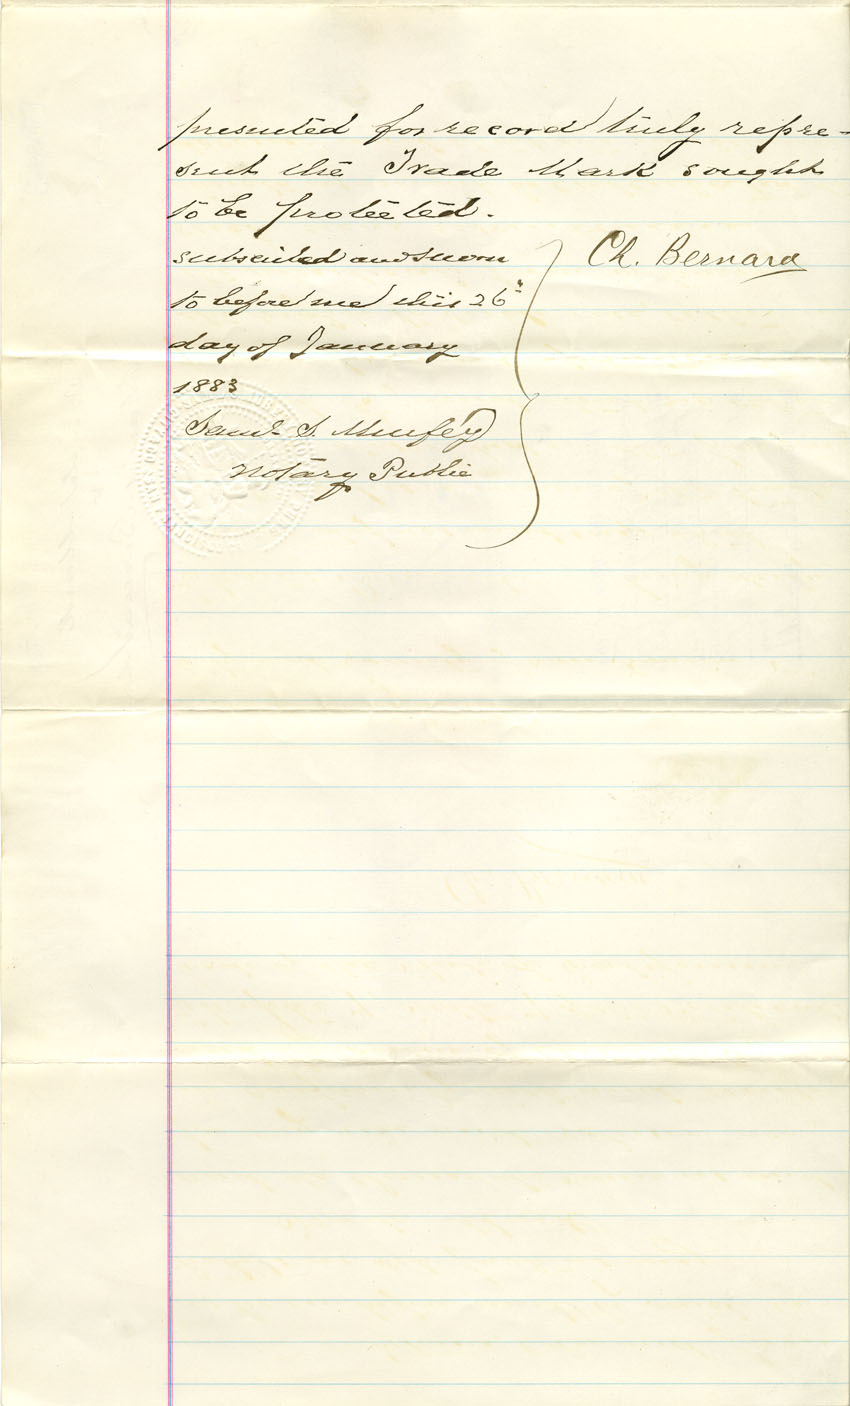 presented for record truly repre-
sent the Trade Mark sought
to be protected.
subscribed and sworn
to before me this 26"
day of January
1883
Ch. Bernard
Saml. S. Murfey
Notary Public